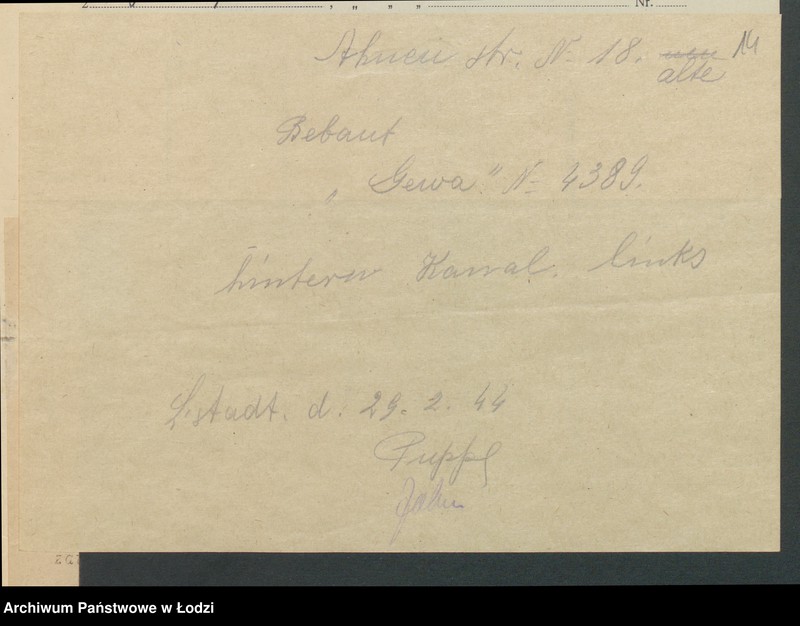 Nr.
14
Ahnen str. N= 18. alte
Bebaut
„Gewa." N= 4389.
hinterm Kanal. links
L'stadt. d. 29. 2. 44
Puppe
Jahn
Archiwum Państwowe w Łodzi